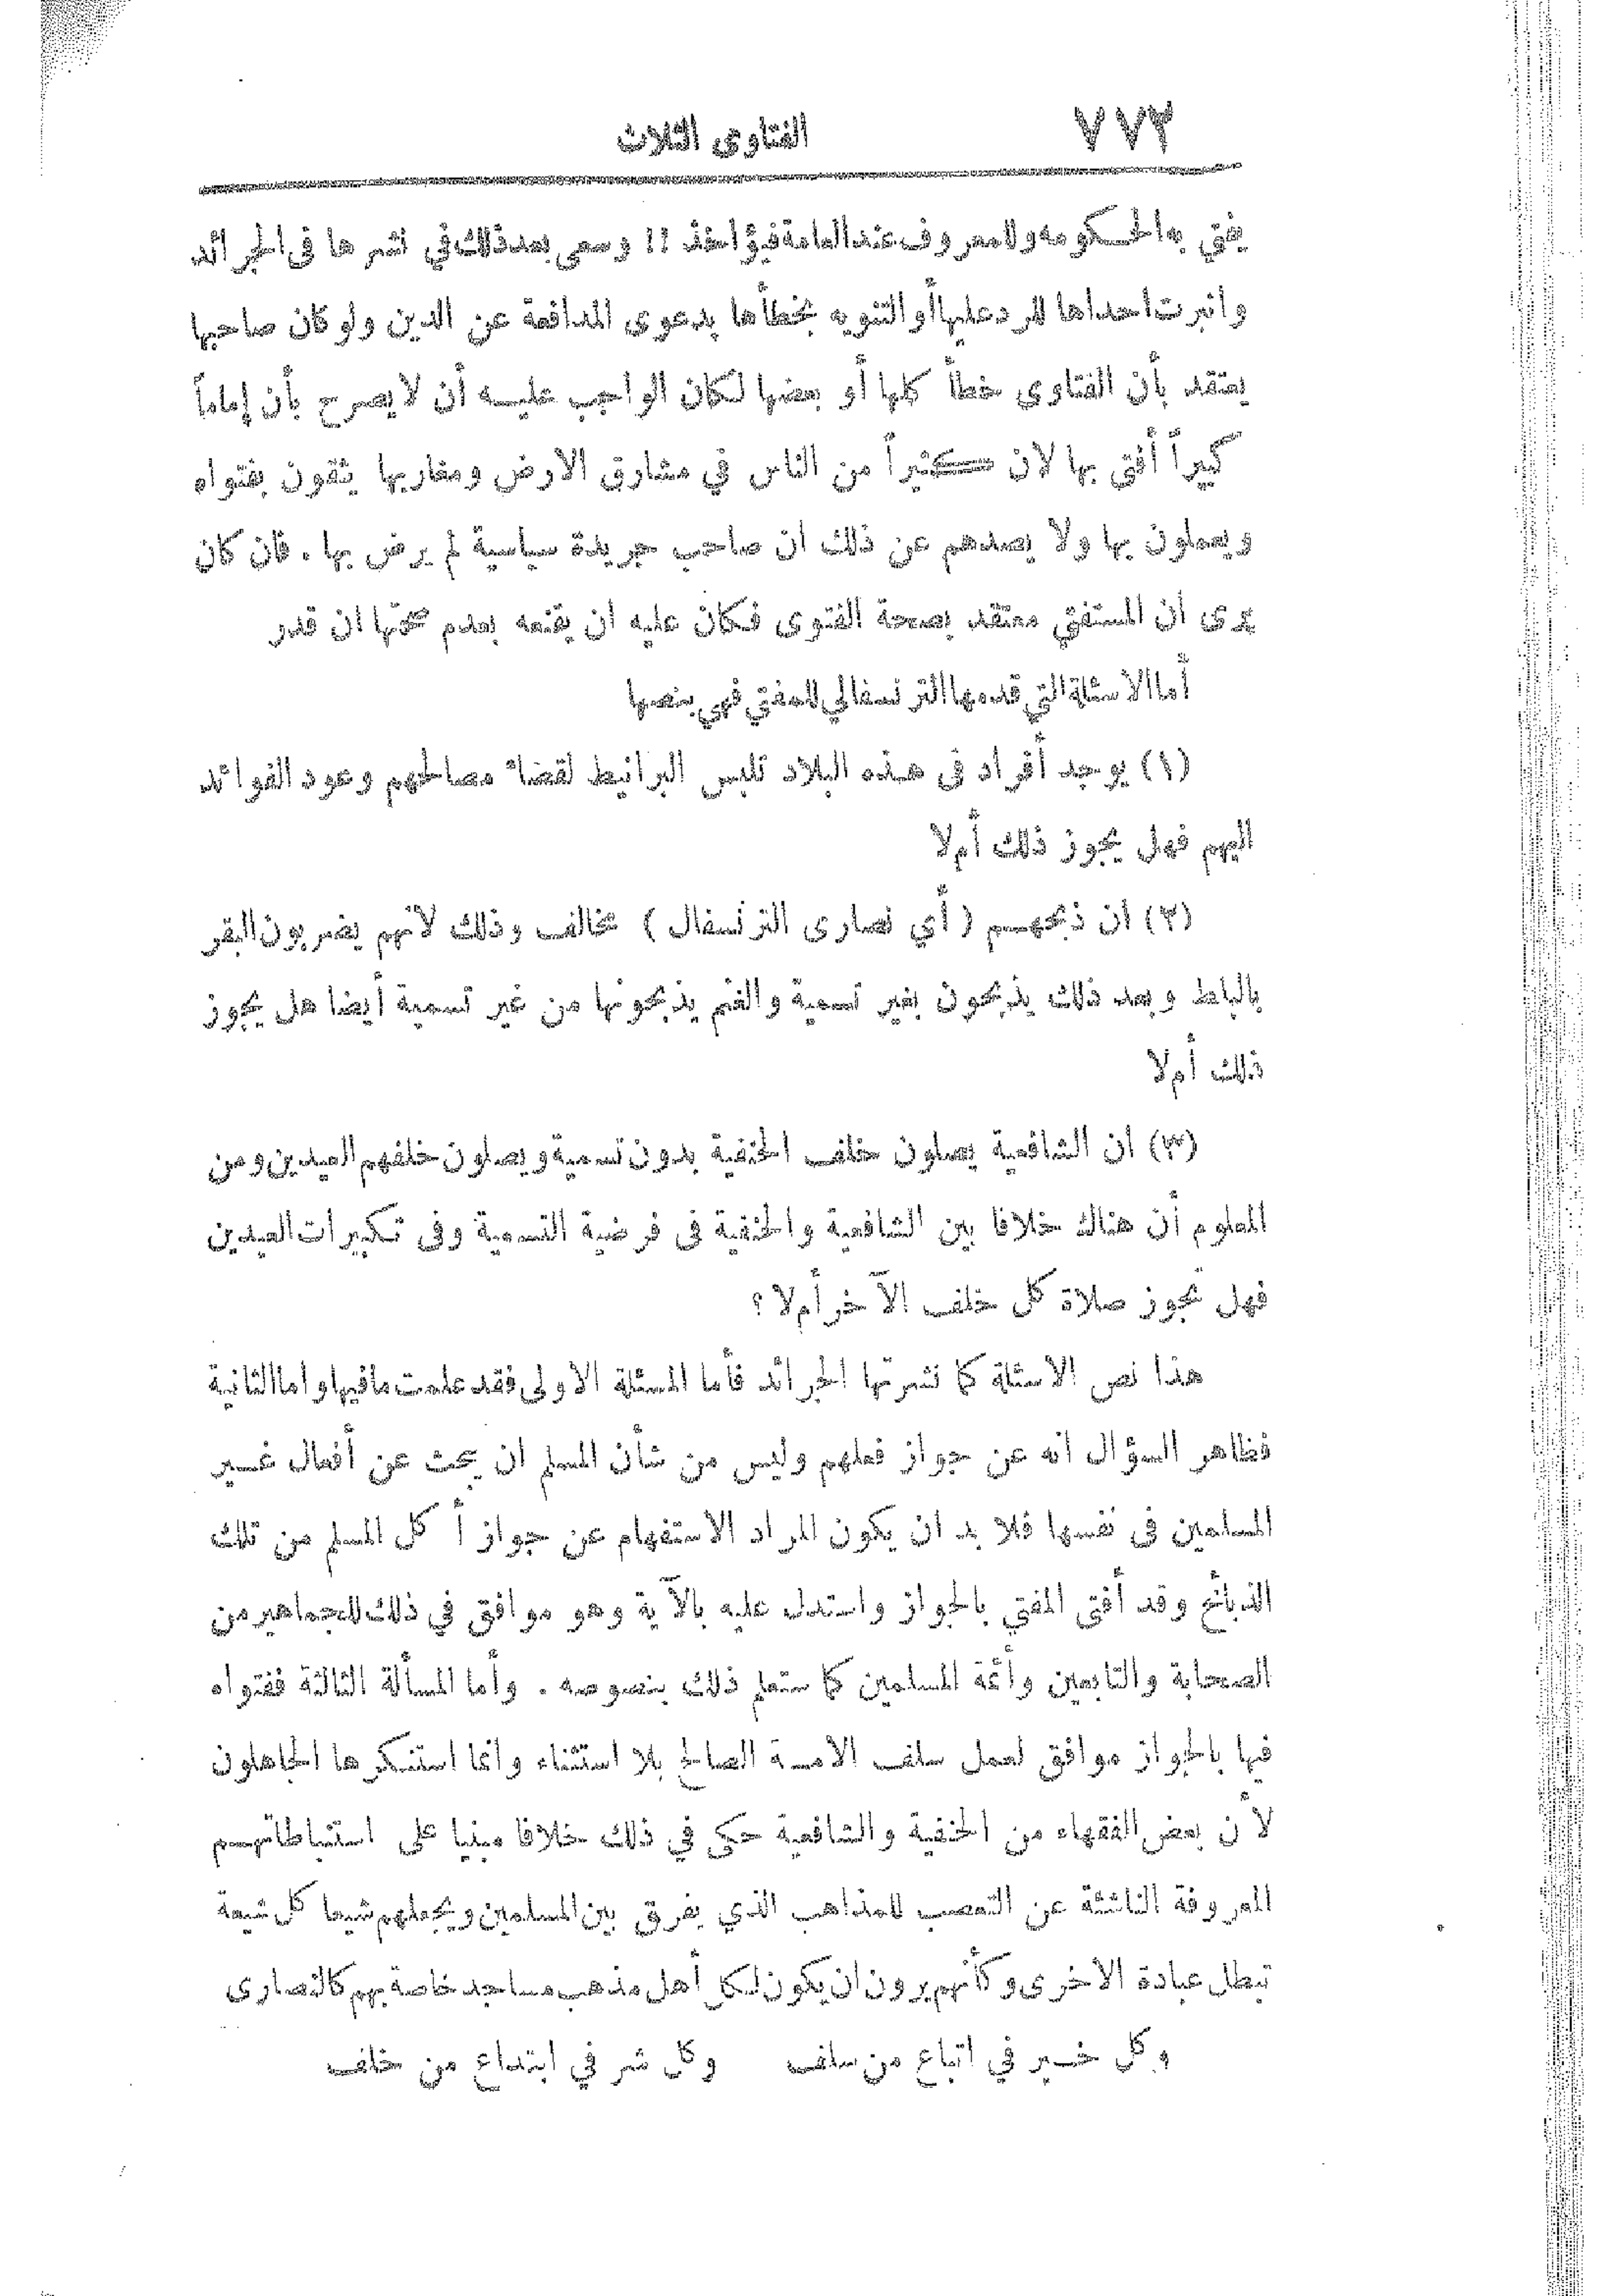 ٧٧٢
الفتاوى الثلاث
يفتي به الحكومه ولا معروف عند العامة فيؤاخذ !! وسعى بعد ذلك في نشرها فى الجرائد
وانبرت احداها للرد عليها أو التنويه بخطأها بدعوى المدافعة عن الدين ولو كان صاحبها
يعتقد بأن الفتاوى خطأ كلها أو بعضها لكان الواجب عليه أن لا يصرح بأن إماماً
كبيراً أفتى بها لان كثيراً من الناس في مشارق الارض ومغاربها يثقون بفتواه
ويعملون بها ولا يصدهم عن ذلك ان صاحب جريدة سياسية لم يرض بها . فان كان
يرى أن المستفتي معتقد بصحة الفتوى فكان عليه ان يقنعه بعدم صحتها ان قدر
أما الاسئلة التي قدمها الترنسفالي للمفتي فهي بنصها
(١) يوجد أفراد فى هذه البلاد تلبس البرانيط لقضاء مصالحهم وعود الفوائد
اليهم فهل يجوز ذلك أم لا
(٢) ان ذبحهم ( أي نصارى الترنسفال ) مخالف وذلك لأنهم يضربون البقر
بالبلط وبعد ذلك يذبحون بغير تسمية والغنم يذبحونها من غير تسمية أيضا هل يجوز
ذلك أم لا
(٣) ان الشافعية يصلون خلف الحنفية بدون تسمية ويصلون خلفهم العيدين ومن
المعلوم أن هناك خلافا بين الشافعية والحنفية فى فرضية التسمية وفى تكبيرات العيدين
فهل تجوز صلاة كل خلف الآخر أم لا ؟
هذا نص الاسئلة كما نشرتها الجرائد فأما المسئلة الاولى فقد علمت ما فيها واما الثانية
فظاهر السؤال انه عن جواز فعلهم وليس من شأن المسلم ان يبحث عن أفعال غير
المسلمين فى نفسها فلا بد ان يكون المراد الاستفهام عن جواز أكل المسلم من تلك
الذبائح وقد أفتى المفتي بالجواز واستدل عليه بالآية وهو موافق في ذلك للجماهير من
الصحابة والتابعين وأئمة المسلمين كما ستعلم ذلك بنصوصه . وأما المسألة الثالثة ففتواه
فيها بالجواز موافق لعمل سلف الامة الصالح بلا استثناء وانما استنكرها الجاهلون
لأن بعض الفقهاء من الحنفية والشافعية حكى في ذلك خلافا مبنيا على استنباطاتهم
المعروفة الناشئة عن التعصب للمذاهب الذي يفرق بين المسلمين ويجعلهم شيعا كل شيعة
تبطل عبادة الاخرى وكأنهم يرون ان يكون لكل أهل مذهب مساجد خاصة بهم كالنصارى
وكل خير في اتباع من سلف وكل شر في ابتداع من خلف